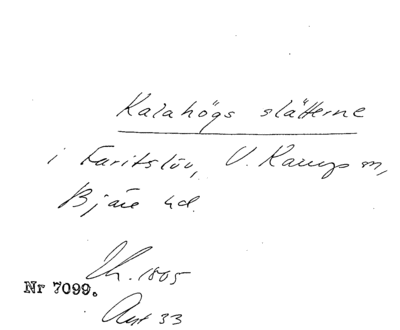 Kalahögs slätterne
i Faritslöv, V. Karup sn,
Bjäre hd.
Nr 7099.